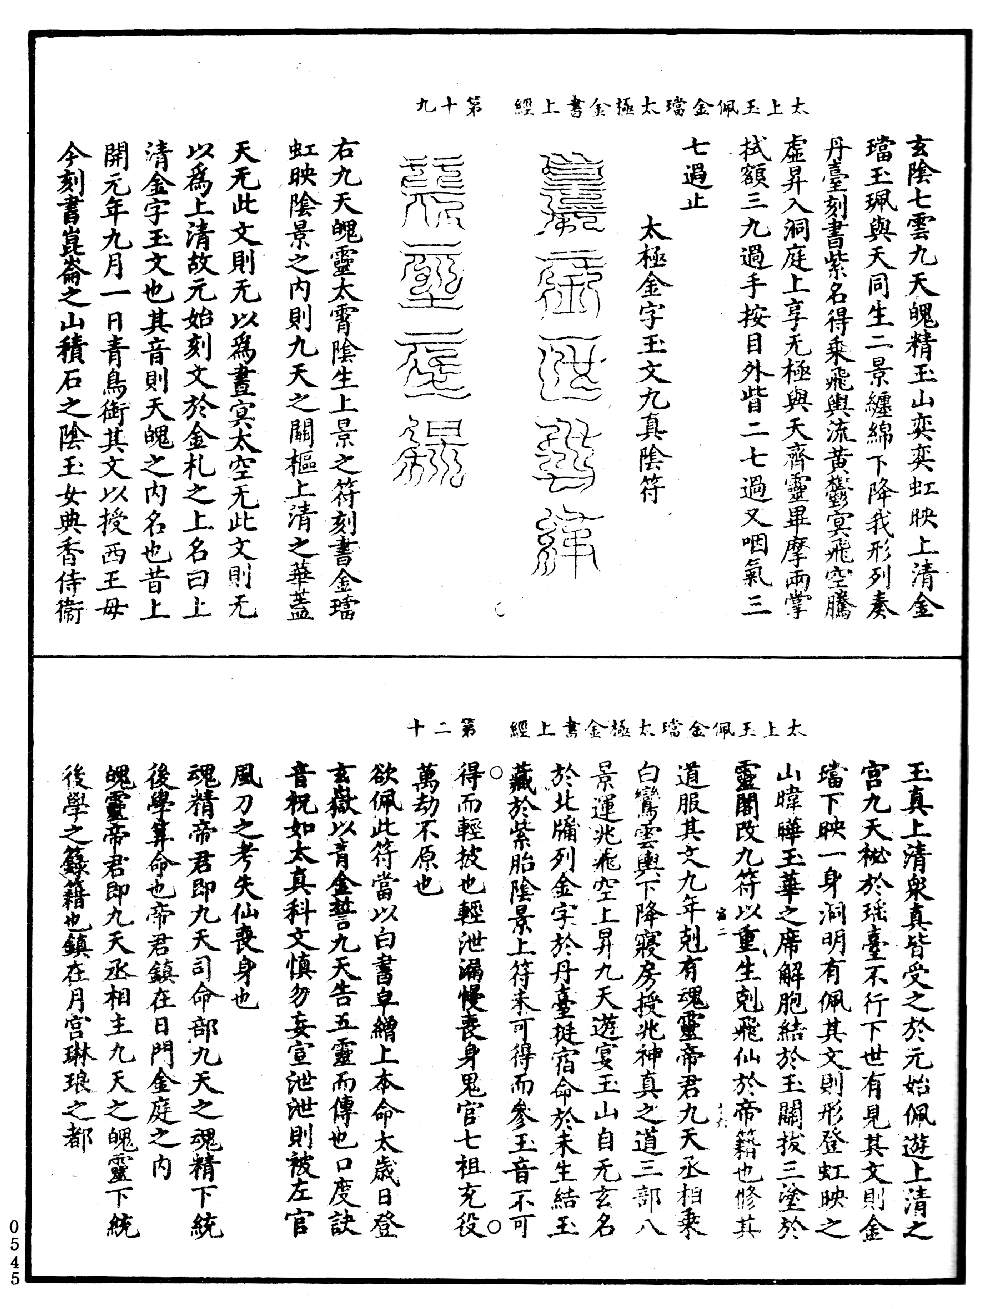 太上玉佩金璫太極金書上經　第十九
玄陰七雲九天魄精玉山奕奕虹映上清金
璫玉珮與天同生二景纏綿下降我形列奏
丹臺刻書紫名得乘飛輿流黃鬱冥飛空騰
虛昇入洞庭上享无極與天齊靈畢摩兩掌
拭額三九過手按目外眥二七過又咽氣三
七過止
太極金字玉文九真陰符
右九天魄靈太霄陰生上景之符刻書金璫
虹映陰景之內則九天之關樞上清之華蓋
天无此文則无以爲晝冥太空无此文則无
以爲上清故元始刻文於金札之上名曰上
清金字玉文也其音則天魄之內名也昔上
開元年九月一日青鳥銜其文以授西王母
今刻書崑崙之山積石之陰玉女典香侍衞
太上玉佩金璫太極金書上經　第二十
玉真上清衆真皆受之於元始佩遊上清之
宮九天祕於瑤臺不行下世有見其文則金
璫下映一身洞明有佩其文則形登虹映之
山暐曄玉華之席解胞結於玉關拔三塗於
靈闇改九符以重生剋飛仙於帝籍也修其
道服其文九年剋有魂靈帝君九天丞相乘
白鸞雲輿下降寢房授兆神真之道三部八
景運兆飛空上昇九天遊宴玉山自无玄名
於北牖列金字於丹臺挺宿命於未生結玉
藏於紫胎陰景上符未可得而參玉音不可
得而輕披也輕泄漏慢喪身鬼官七祖充役
萬劫不原也
欲佩此符當以白書皁繒上本命太歲日登
玄嶽以青金誓九天告五靈而傳也口度訣
音祝如太真科文慎勿妄宣泄泄則被左官
風刀之考失仙喪身也
魂精帝君即九天司命部九天之魂精下統
後學算命也帝君鎮在日門金庭之內
魄靈帝君即九天丞相主九天之魄靈下統
後學之錄籍也鎮在月宮琳琅之都
0545